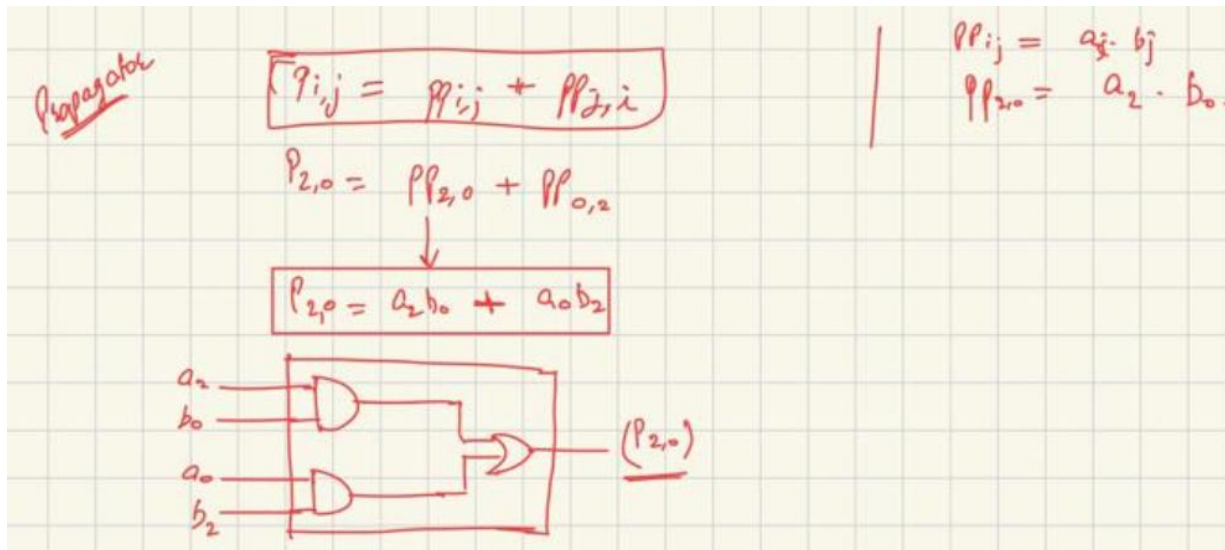 Propagator
Pi,j = PPi,j + PPj,i
P2,0 = PP2,0 + PP0,2
P2,0 = a2b0 + a0b2
a2
b0
a0
b2
(P2,0)
PPij = aj. bj
PP2,0 = a2 . b0.